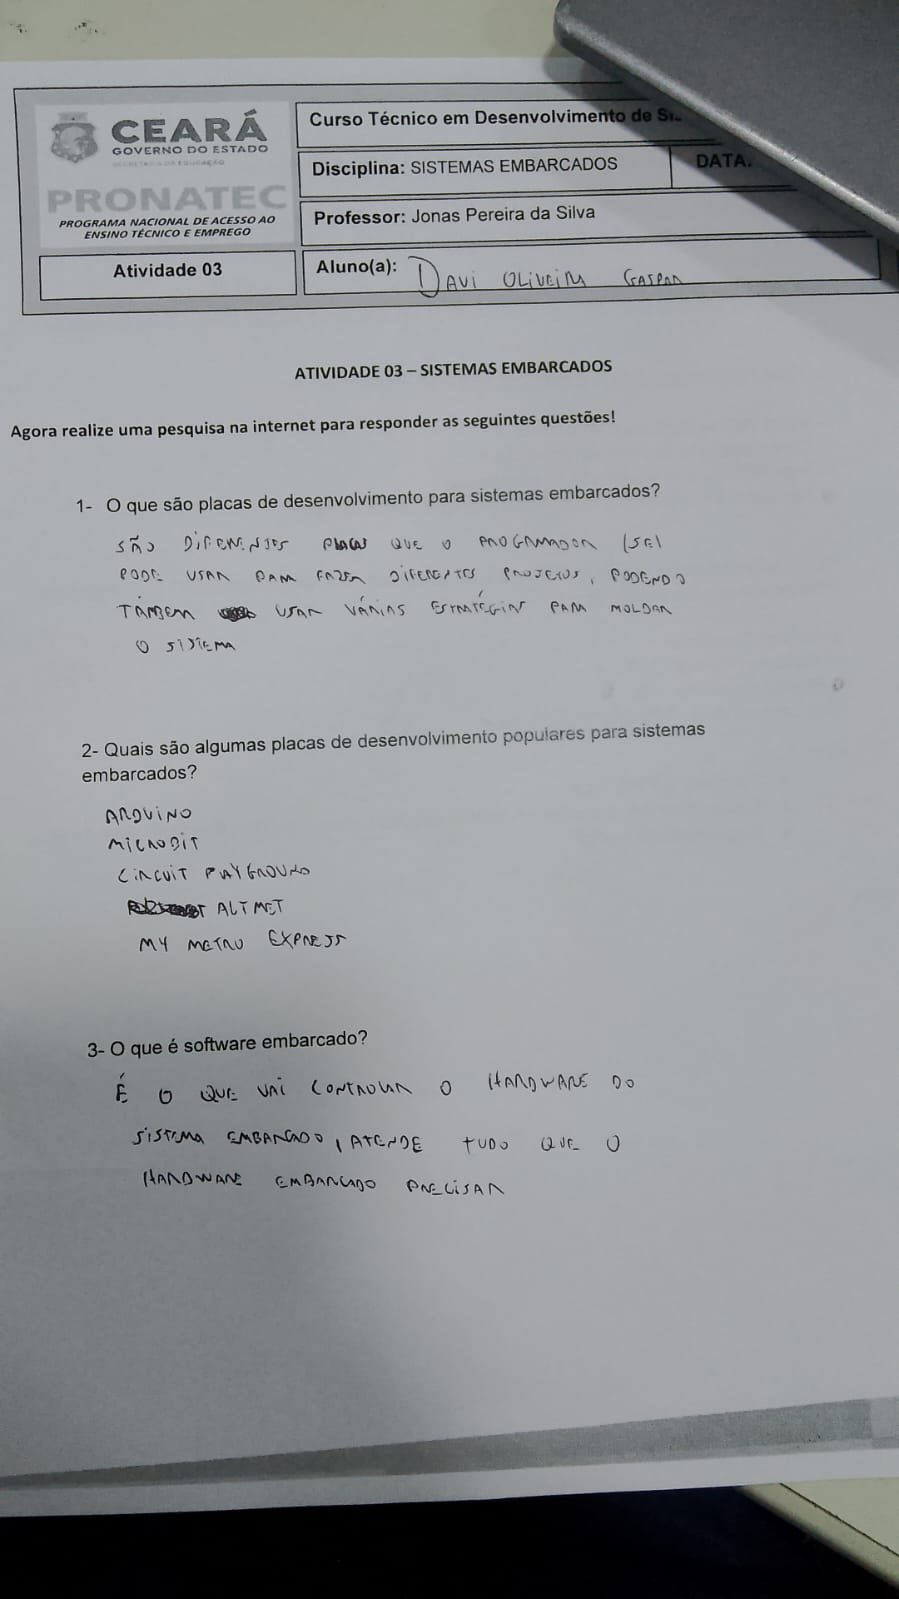 CEARÁ
GOVERNO DO ESTADO
SECRETARIA DA EDUCAÇÃO
PRONATEC
PROGRAMA NACIONAL DE ACESSO AO
ENSINO TÉCNICO E EMPREGO
Atividade 03
Curso Técnico em Desenvolvimento de
Disciplina: SISTEMAS EMBARCADOS
DATA.
Professor: Jonas Pereira da Silva
Aluno(a): DAVI OLIVEIRA GASPAR
ATIVIDADE 03 – SISTEMAS EMBARCADOS
Agora realize uma pesquisa na internet para responder as seguintes questões!
1- O que são placas de desenvolvimento para sistemas embarcados?
SÃO DIFERENTES PLACAS QUE O PROGRAMADOR (SE)
PODE USAR PARA FAZER DIFERENTES PROJETOS, PODENDO
TAMBEM USAR VÁRIAS ESTRATÉGIAS PARA MOLDAR
O SISTEMA
2- Quais são algumas placas de desenvolvimento populares para sistemas
embarcados?
ARDUINO
MICROBIT
CIRCUIT PLAYGROUND
ALTMET
MY METRO EXPRESS
3- O que é software embarcado?
É O QUE VAI CONTROLAR O HARDWARE DO
SISTEMA EMBARCADO, ATENDE TUDO QUE O
HARDWARE EMBARCADO PRECISAR